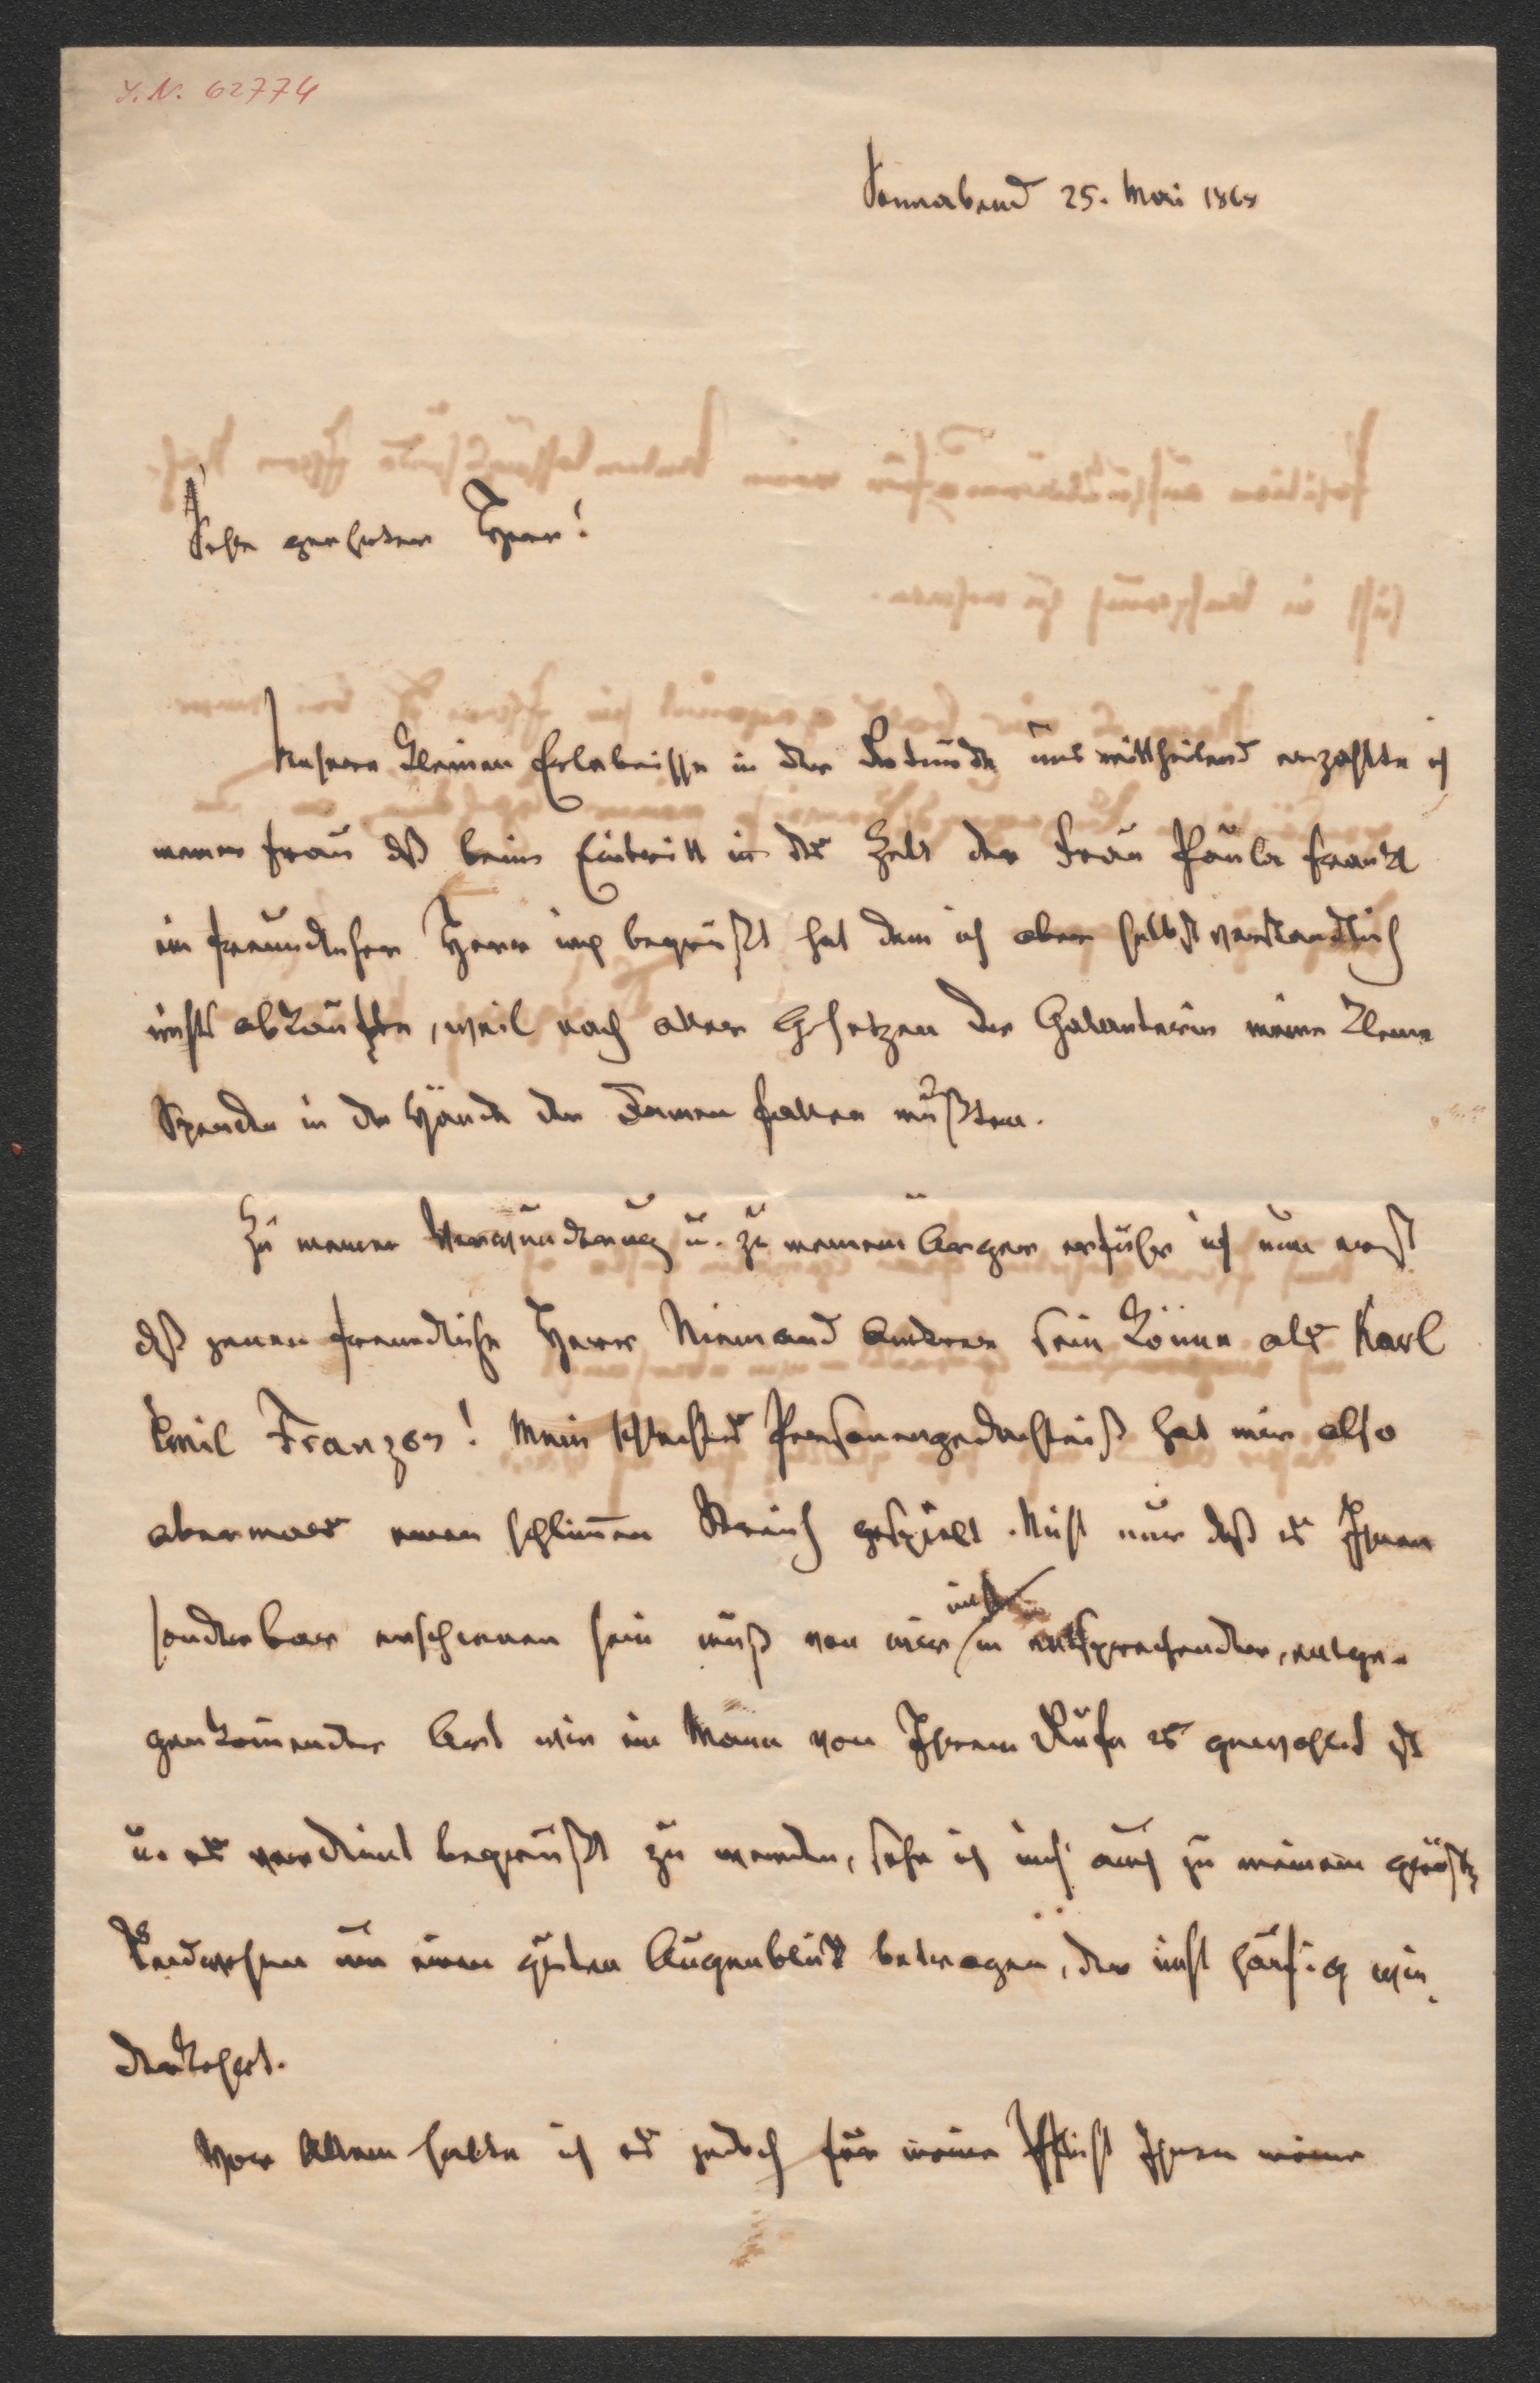 I. N. 62774
Sonnabend 25. Mai 18
Sehr geehrter Herr!
Unsere kleinen Erlebnisse in der Rotunde uns mittheilend erzählte ich
meiner Frau dß beim Eintritt in das Zelt der Frau Paula Frankl
ein freundlicher Herr mich begrüßt hat dem ich aber selbstverständlich
nichts abkaufte, weil nach allen Gesetzen der Galanterie meine kleine
Spenden in die Hände der Damen fallen mußten.
Zu meiner Verwunderung u. zu meinem Ärger erfuhr ich nun erst
dß jener freundliche Herr Niemand Anderer sein könne als Karl
Emil Franzos! Mein schlechtes Personengedächtniß hat mir also
abermals einen schlim̄en Streich gespielt. Nicht nur dß es Ihnen
sonderbar erschienen sein muß von mir nicht in entsprechender, entge-
genkom̄ender Art wie ein Mann von Ihrem Rufe es gewohnt ist
u. es verdient begrüßt zu werden, sehe ich mich auch zu meinem größten
Leidwesen um einen guten Augenblick betrogen, der nicht häufig wie-
derkehrt.
Vor Allem halte ich es jedoch für meine Pflicht Ihnen meine